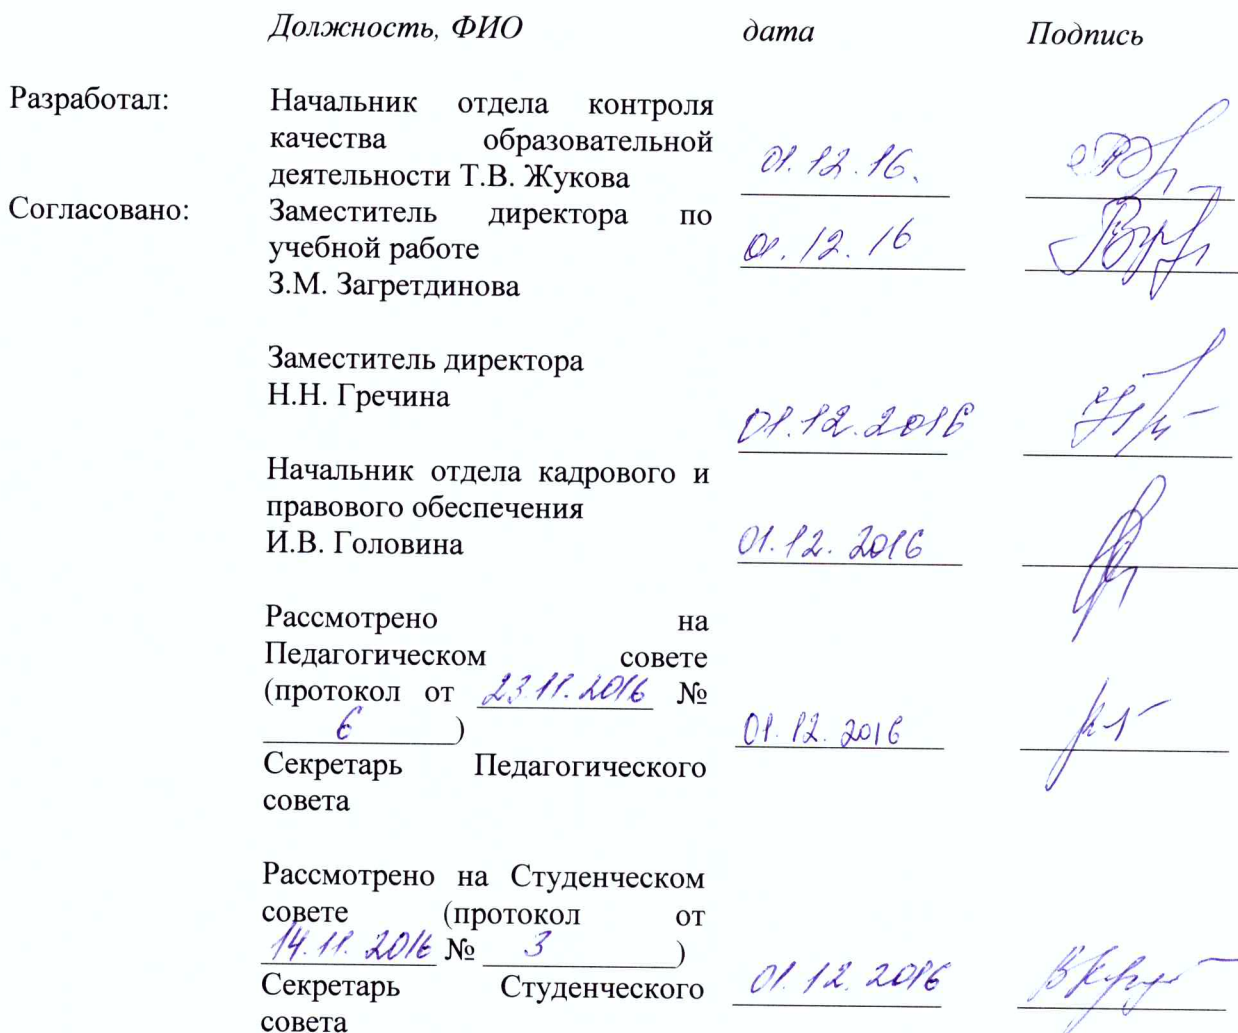 Должность, ФИО дата Подпись
Разработал: Начальник отдела контроля
качества образовательной
деятельности Т.В. Жукова 01.12.16.
Согласовано: Заместитель директора по
учебной работе 01.12.16
З.М. Загретдинова
Заместитель директора
Н.Н. Гречина 01.12.2016
Начальник отдела кадрового и
правового обеспечения
И.В. Головина 01.12.2016
Рассмотрено на
Педагогическом совете
(протокол от 23.11.2016 №
6 ) 01.12.2016
Секретарь Педагогического
совета
Рассмотрено на Студенческом
совете (протокол от
14.11.2016 № 3 )
Секретарь Студенческого 01.12.2016
совета